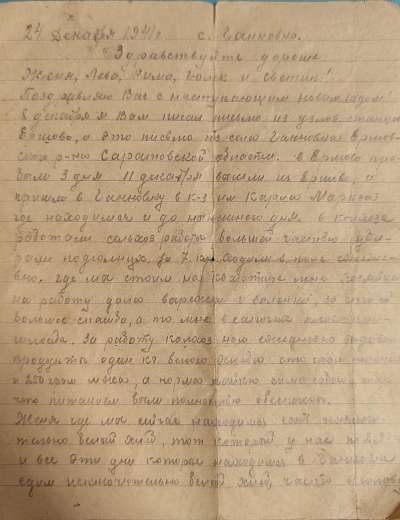 24 декабря 1941 г. с. Ганновка.
Здравствуйте дорогие
Женя, Лева, Рима, Галик и Светик!
Поздравляю Вас с наступающим новым годом!
8 декабря я Вам писал письмо из узлов. станции
Ершово, а это письмо из села Ганновка Ершов-
ского р-на Саратовской области. в Ершово про-
были 3 дня 11 декабря вышли из Ершово, и
пришли в Ганновку в к-з им Карла Маркса
где находимся и до нынешнего дня. в колхозе
работаем сельхоз. работы большей частью уби-
раем подсолнух, за 7 км ходили в поле
где мы стоим на квартире мне хозяйка
на работу дала варежки и валенки, за что ей
большое спасибо, а то мне в сапогах
За работу колхоз нам ежедневно
продукты один кг. белого сто грам
и 250 грам мяса, а кормо само собою так
что питанием были полностью обеспечены.
Женя где мы сейчас находимся есть исключи-
тельно белый хлеб, тот который у нас
и все эти дни которые находимся в Ганновке
едим исключительно белый хлеб, часто